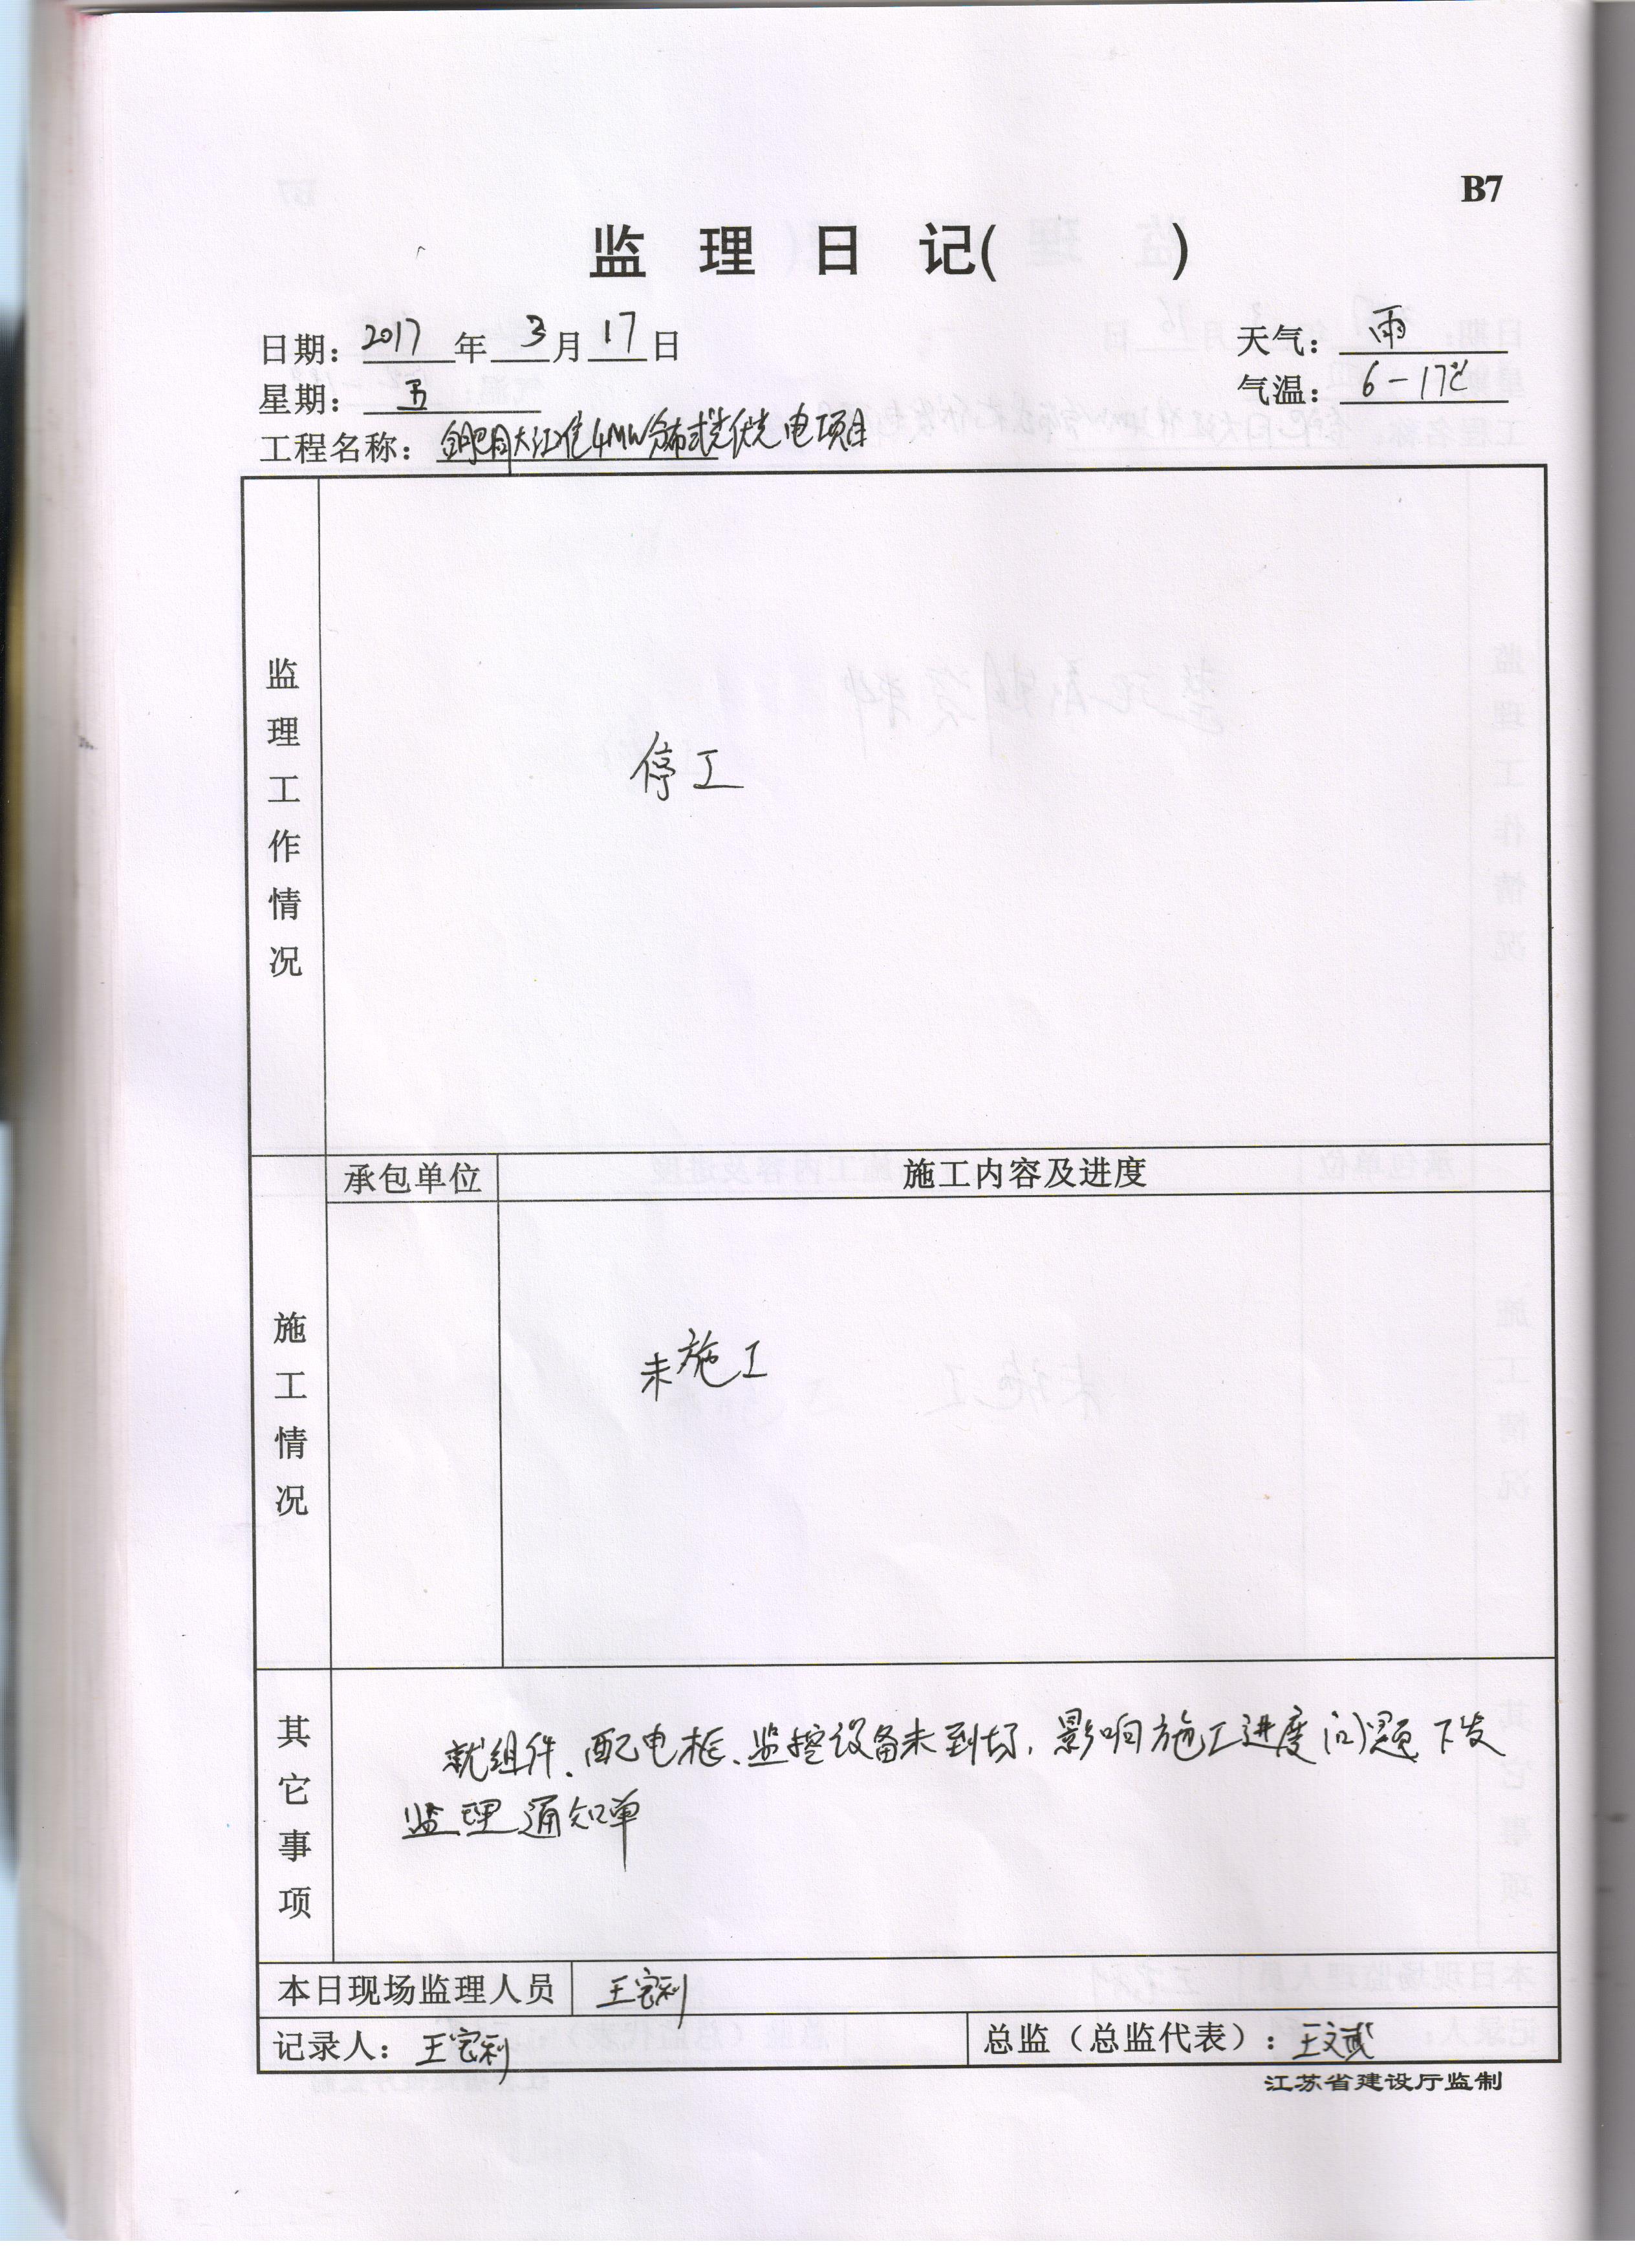 B7
监 理 日 记( )
日期：2017年 3月17日 天气：雨
星期：五 气温：6-17℃
工程名称：合肥同大江淮4MW分布式光伏发电项目
监理工作情况
停工
施工情况
承包单位 施工内容及进度
未施工
其它事项
就组件、配电柜、监控设备未到场，影响施工进度问题下发
监理通知单
本日现场监理人员 王宏利
记录人：王宏利 总监（总监代表）：王文斌
江苏省建设厅监制